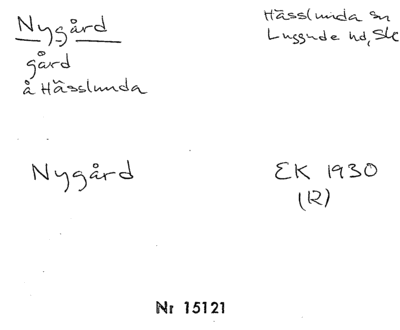 Nygård
Hässlunda sn
Luggude hd, Skc
gård
å Hässlunda
Nygård
EK 1930
(R)
Nr 15121